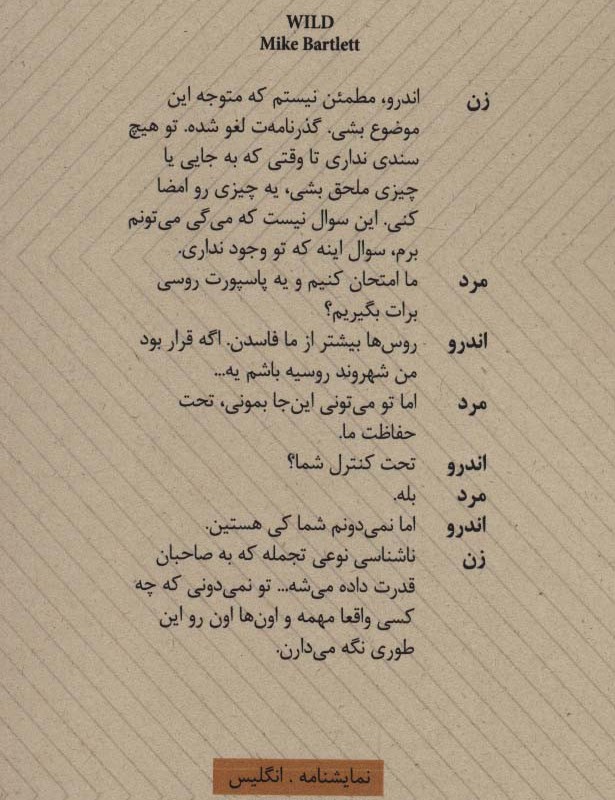 WILD
Mike Bartlett
زن اندرو، مطمئن نیستم که متوجه این
موضوع بشی. گذرنامه‌ت لغو شده. تو هیچ
سندی نداری تا وقتی که به جایی یا
چیزی ملحق بشی، یه چیزی رو امضا
کنی. این سوال نیست که می‌گی می‌تونم
برم، سوال اینه که تو وجود نداری.
مرد ما امتحان کنیم و یه پاسپورت روسی
برات بگیریم؟
اندرو روس‌ها بیشتر از ما فاسدن. اگه قرار بود
من شهروند روسیه باشم یه...
مرد اما تو می‌تونی این‌جا بمونی، تحت
حفاظت ما.
اندرو تحت کنترل شما؟
مرد بله.
اندرو اما نمی‌دونم شما کی هستین.
زن ناشناسی نوعی تجمله که به صاحبان
قدرت داده می‌شه... تو نمی‌دونی که چه
کسی واقعا مهمه و اون‌ها اون رو این
طوری نگه می‌دارن.
نمایشنامه . انگلیس